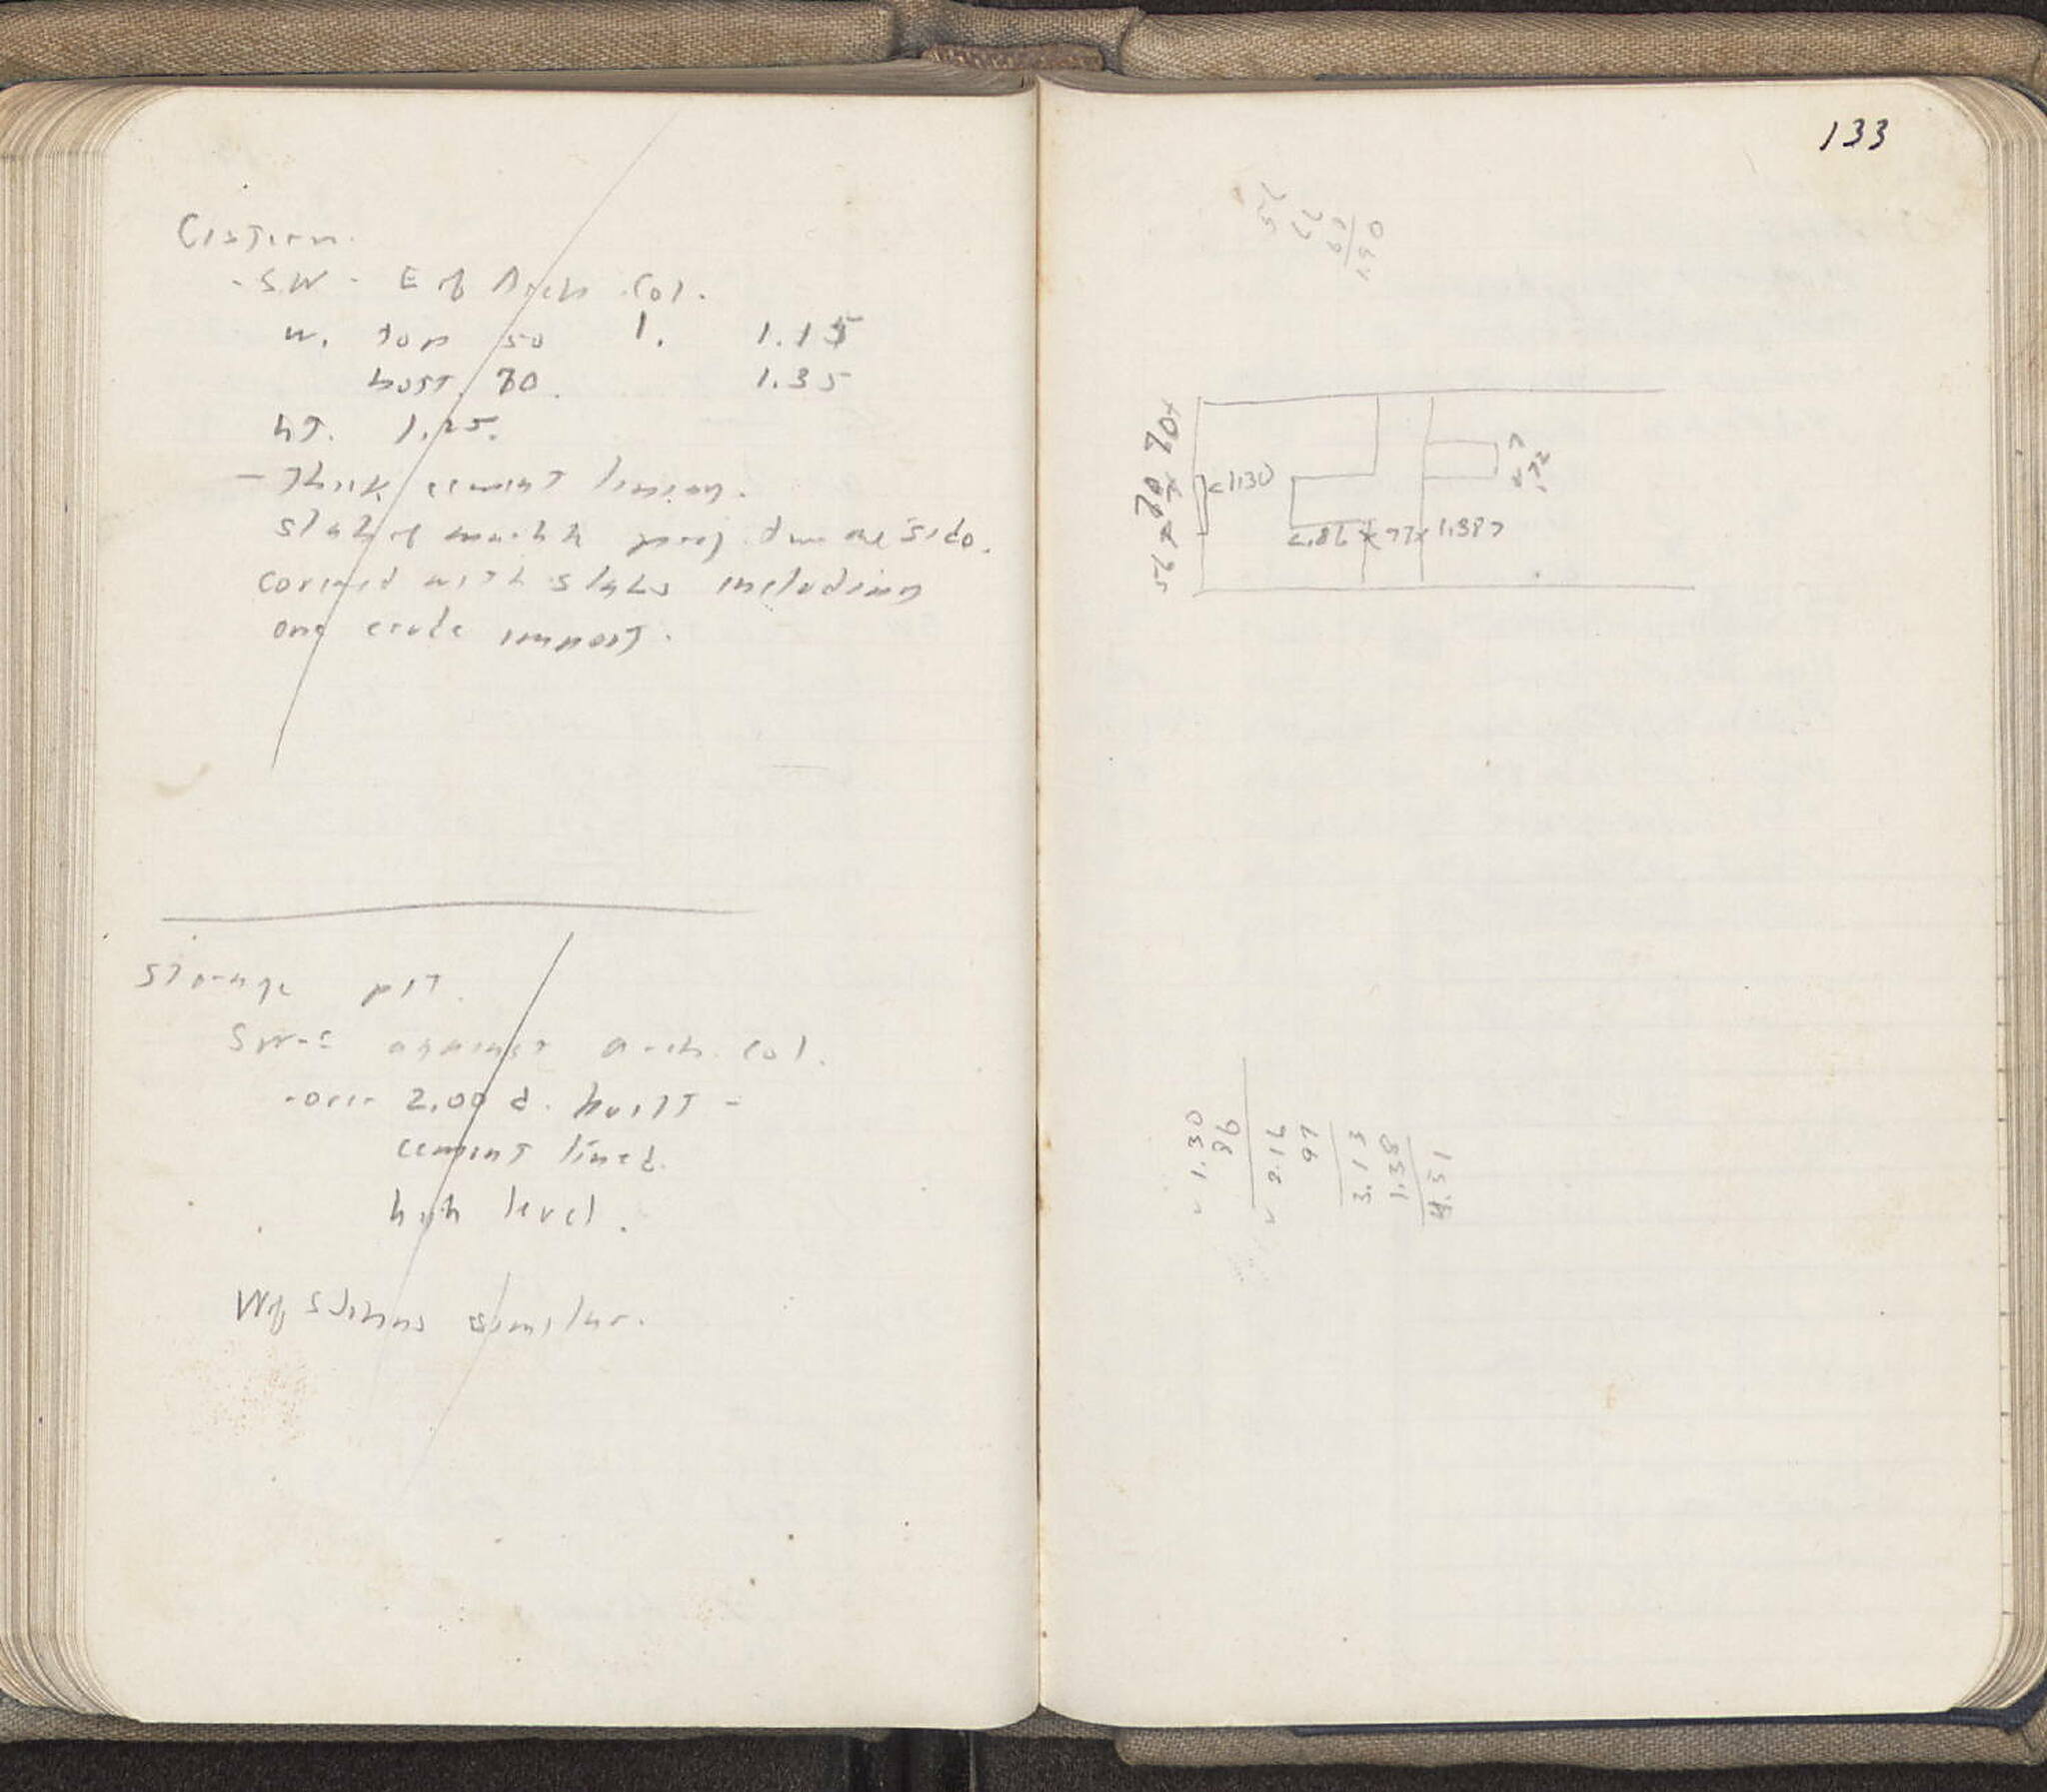 Cistern.
- SW - E of Arch Col.
w. top 50 l. 1.15
bott. 70. 1.35
ht. 1.25.
- Thick cement lining.
slab of marble proj. from one side.
covered with slabs including
one crude impost.
Storage pit.
SW-E against arch. col.
-over 2.00 d. built -
cement lined.
high level.
W of similar.
133
56
1.90
70
70
56
<1.30>
<.86 x 97 x 1.38>
.72
1.30
86
2.16
97
3.13
1.38
4.51